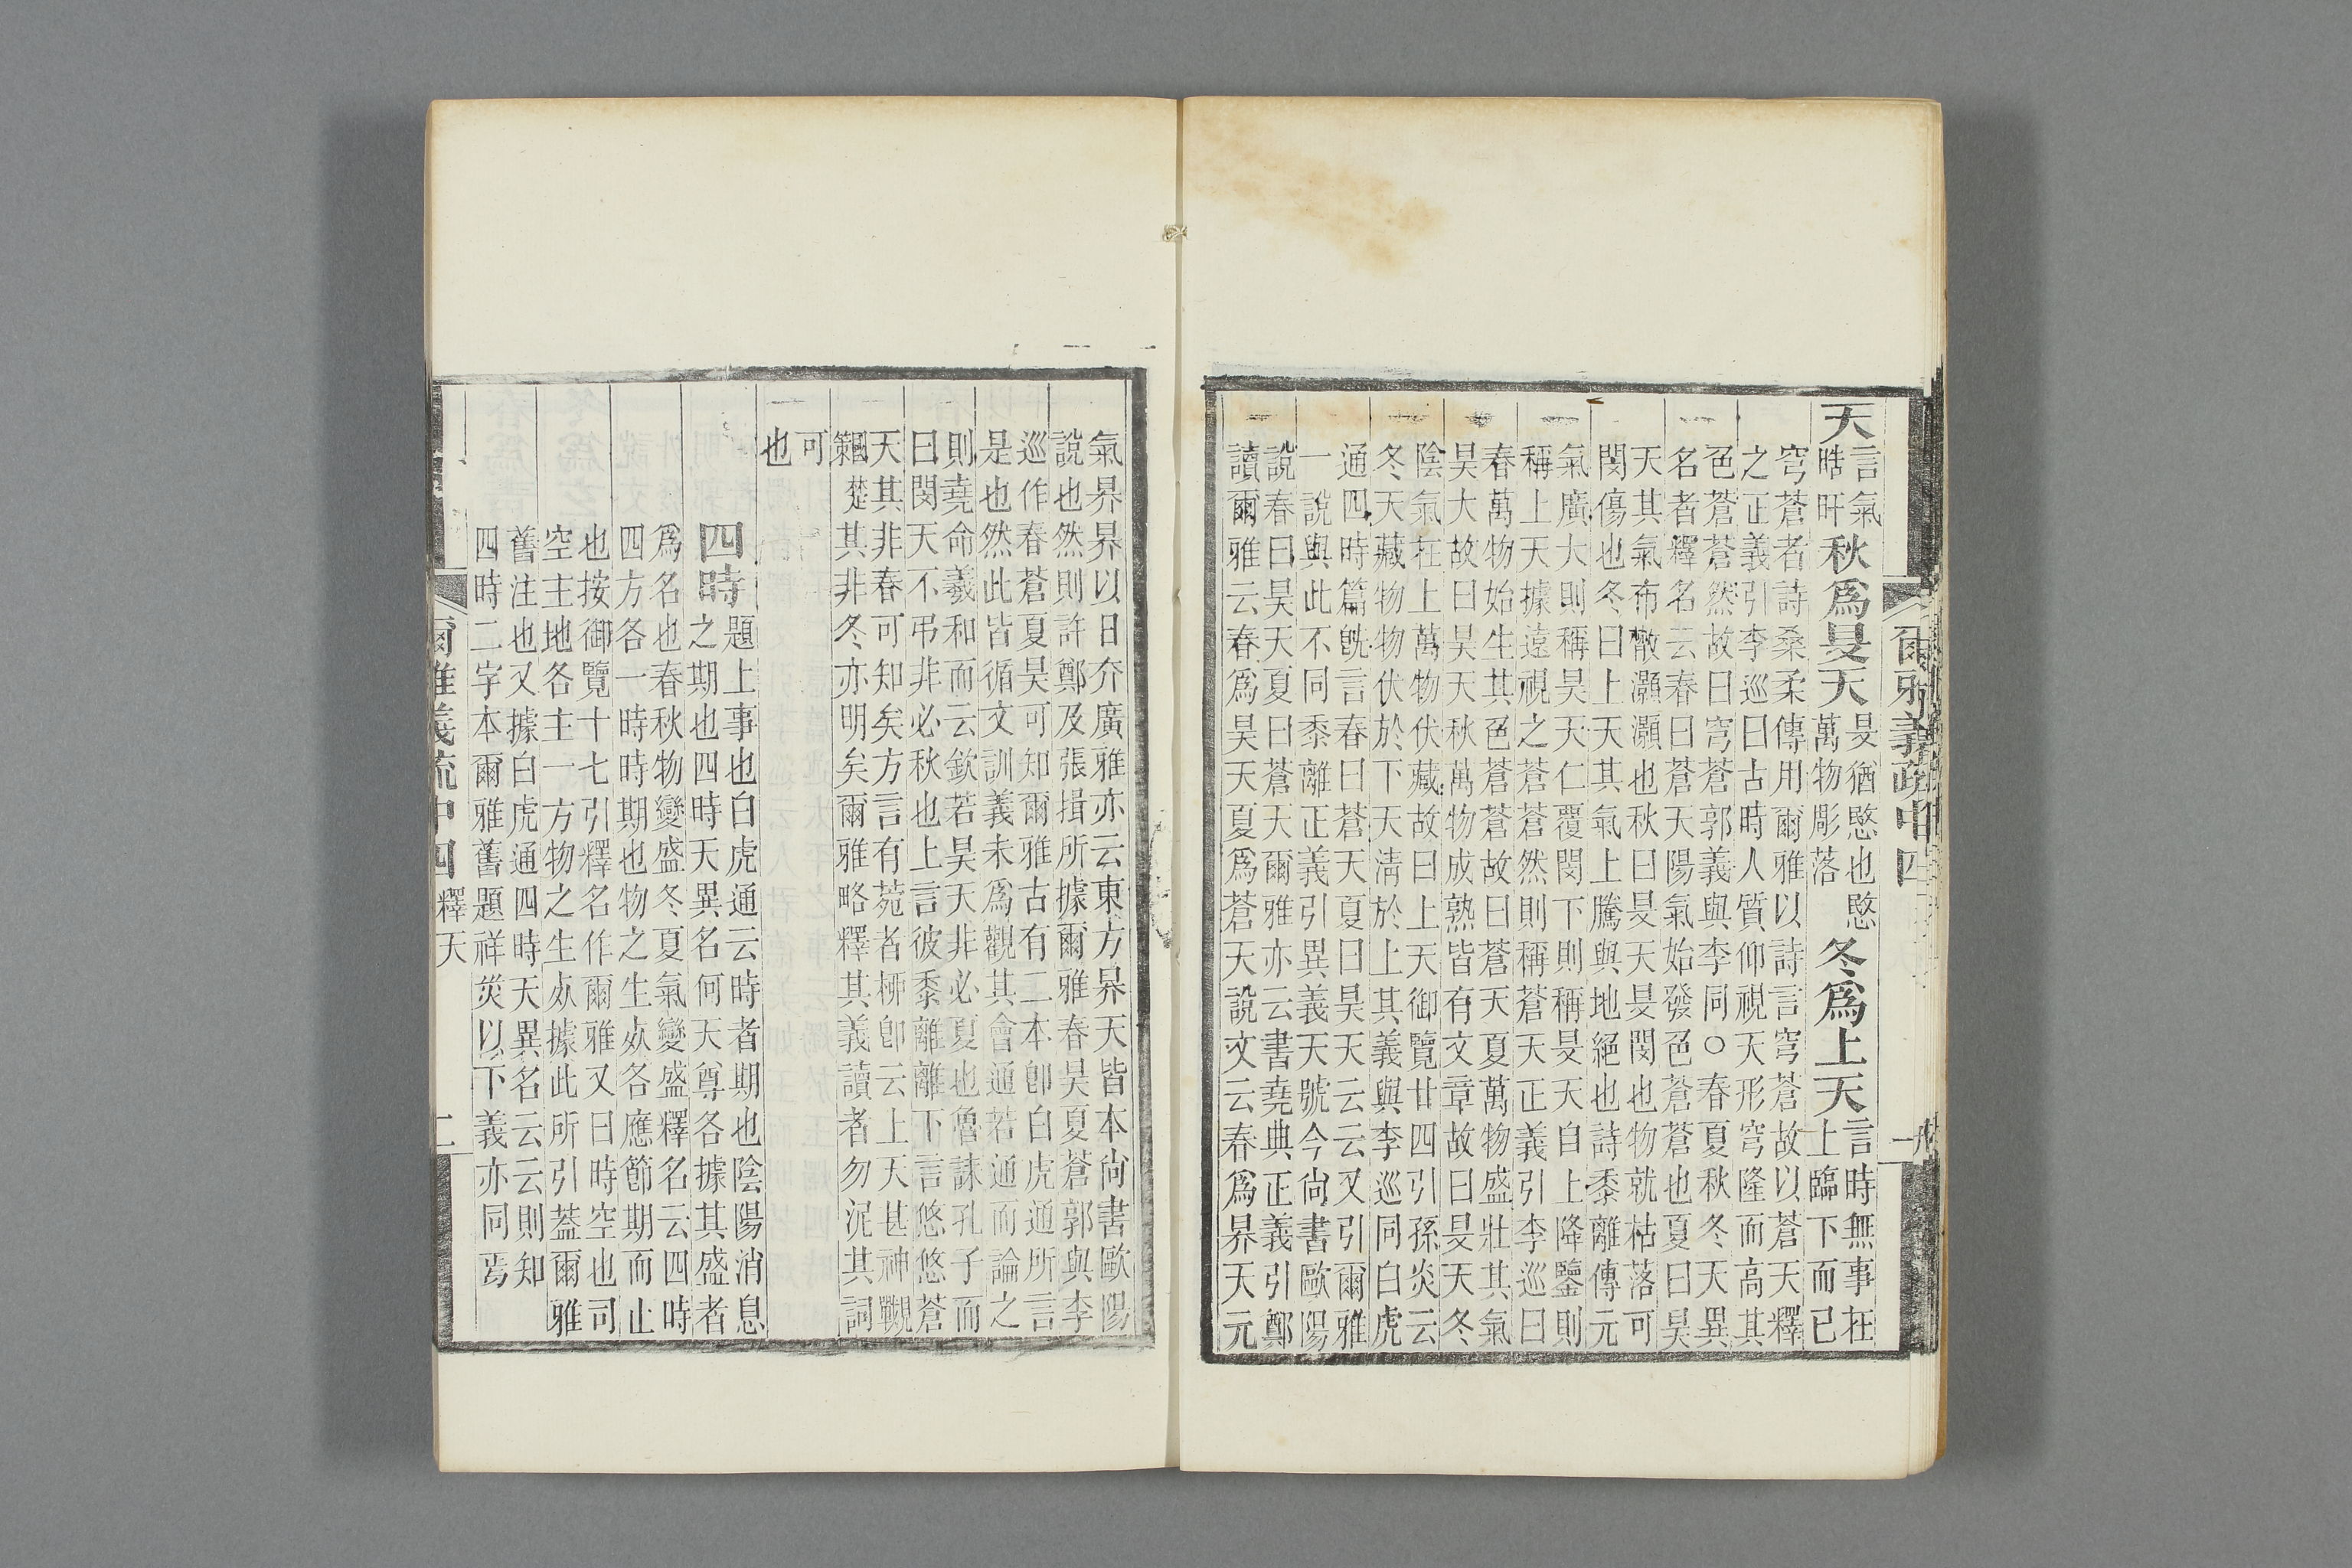 爾雅義疏中四
一
天言氣
晧旰秋爲旻天旻猶愍也愍
萬物彫落冬爲上天言時無事在
上臨下而已
穹蒼者詩桑柔傳用爾雅以詩言穹蒼故以蒼天釋
之正義引李巡曰古時人質仰視天形穹隆而高其
色蒼蒼然故曰穹蒼郭義與李同○春夏秋冬天異
名者釋名云春曰蒼天陽氣始發色蒼蒼也夏曰昊
天其氣布散灝灝也秋曰旻天旻閔也物就枯落可
閔傷也冬曰上天其氣上騰與地絕也詩黍離傳元
氣廣大則稱昊天仁覆閔下則稱旻天自上降鑒則
稱上天據遠視之蒼蒼然則稱蒼天正義引李巡曰
春萬物始生其色蒼蒼故曰蒼天夏萬物盛壯其氣
昊大故曰昊天秋萬物成熟皆有文章故曰旻天冬
陰氣在上萬物伏藏故曰上天御覽廿四引孫炎云
冬天藏物物伏於下天淸於上其義與李巡同白虎
通四時篇旣言春曰蒼天夏曰昊天云云又引爾雅
一說與此不同黍離正義引異義天號今尚書歐陽
說春曰昊天夏曰蒼天爾雅亦云書堯典正義引鄭
讀爾雅云春爲昊天夏爲蒼天說文云春爲昦天元
氣昦昦以日夰廣雅亦云東方昦天皆本尚書歐陽
說也然則許鄭及張揖所據爾雅春昊夏蒼郭與李
巡作春蒼夏昊可知爾雅古有二本卽白虎通所言
是也然此皆循文訓義未爲觀其會通若通而論之
則堯命羲和而云欽若昊天非必夏也魯誄孔子而
曰閔天不弔非必秋也上言彼黍離離下言悠悠蒼
天其非春可知矣方言有菀者柳卽云上天甚神見戰
國策楚其非冬亦明矣爾雅略釋其義讀者勿泥其詞
可
也
四時題上事也白虎通云時者期也陰陽消息
之期也四時天異名何天尊各據其盛者
爲名也春秋物變盛冬夏氣變盛釋名云四時
四方各一時時期也物之生死各應節期而止
也按御覽十七引釋名作爾雅又曰時空也司
空主地各主一方物之生死據此所引葢爾雅
舊注也又據白虎通四時天異名云云則知
四時二字本爾雅舊題祥災以下義亦同焉
爾雅義疏中四 釋天
二